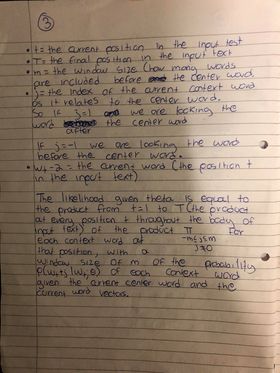 ③
• t = the current position in the input test
• T = the final position in the input text
• m = the window size (how many words
are included before the center word.
• j = the index of the current context word
as it relates to the center word.
So if j=1 we are looking the
word the center word
after
If j=-1 we are looking the word
before the center word.
• = the current word (the position t
in the input text)
The likelihood given theta is equal to
the product from t=1 to T (the product
at every position t throughout the body of
input text) of the product Π for
-m≤j≤m
each context word at
j≠0
that position, with a
window size of m of the probability
p(wt+j | wt, θ) of each context word
given the current center word and the
current word vectors.